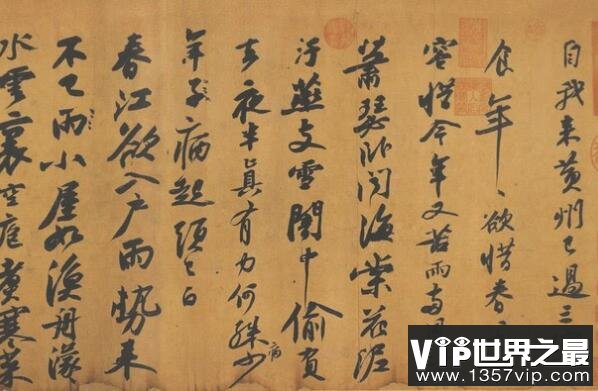 自我来黄州已過三
食年、欲惜春
容惜今年又苦雨兩
蕭瑟卧聞海棠花泥
汙燕支雪闇中偷負
去夜半真有力何殊少
病
年子病起須已白
春江欲入戶雨勢來
不已雨小屋如漁舟濛
水雲裏空庖煮寒菜
VIP世界之最
www.1357vip.com